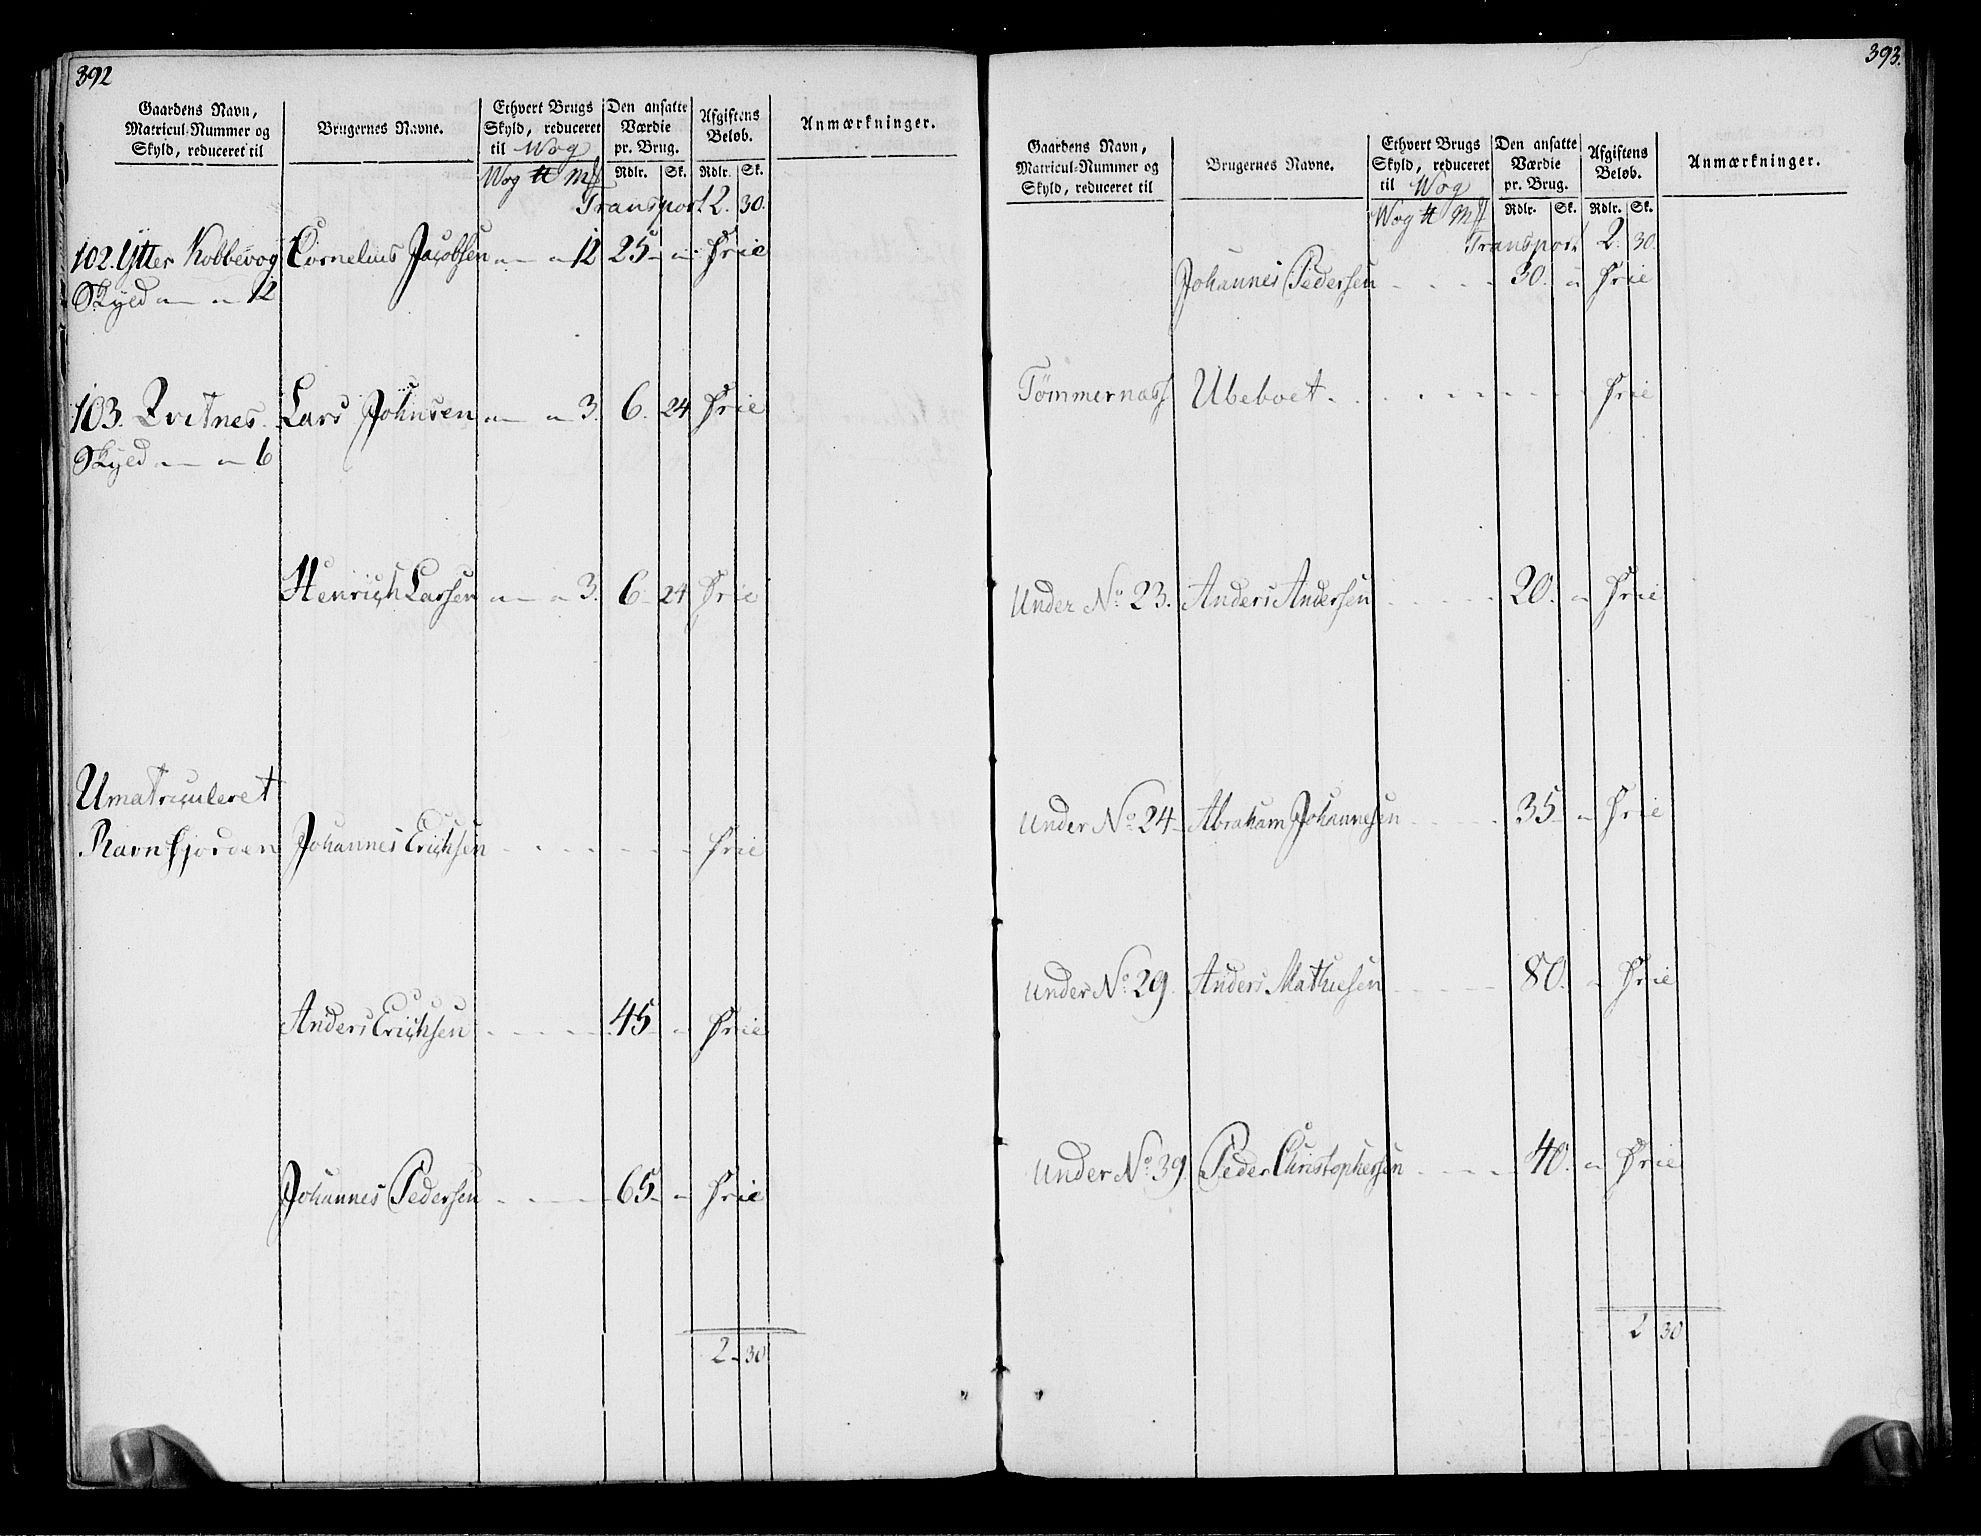 392
Gaardens Navn, Matricul-Nummer og Skyld, reduceret til
Brugernes Navne.
Ethvert Brugs Skyld, reduceret til Wog
Den ansatte Værdie pr. Brug.
Afgiftens Beløb.
Anmærkninger.
Wog ℔ Mk Rdlr. Sk. Rdlr. Sk.
Transport 2. 30.
102. Ytter Kobbevog Cornelius Jacobsen " — " 12 25 — " Frie
Skyld " — " 12
103. Qvitnes Lars Johnsen " — " 3. 6. 24 Frie
Skyld " — " 6
Henrich Larsen " — " 3. 6 — 24 Frie
Umatriculeret
Ravnfjorden Johannes Erichsen - - - - - - Frie
Anders Erichsen - - - - 45 — " Frie
Johannes Pedersen - - - - 65 — " Frie
2 — 30
393.
Gaardens Navn, Matricul-Nummer og Skyld, reduceret til
Brugernes Navne.
Ethvert Brugs Skyld, reduceret til Wog
Den ansatte Værdie pr. Brug.
Afgiftens Beløb.
Anmærkninger.
Wog ℔ Mk Rdlr. Sk. Rdlr. Sk.
Transport 2. 30.
Johannes Pedersen - - - - 30. " Frie
Tømmernæss Ubeboet - - - - - - - - Frie
Under No. 23. Anders Andersen - - - - 20. " Frie
Under No. 24 — Abraham Johannesen - - - - 35 — " Frie
Under No. 29. Anders Mathiesen - - - - 80. " Frie
Under No. 39. Peder Christophersen - - - - 40. " Frie
2 30